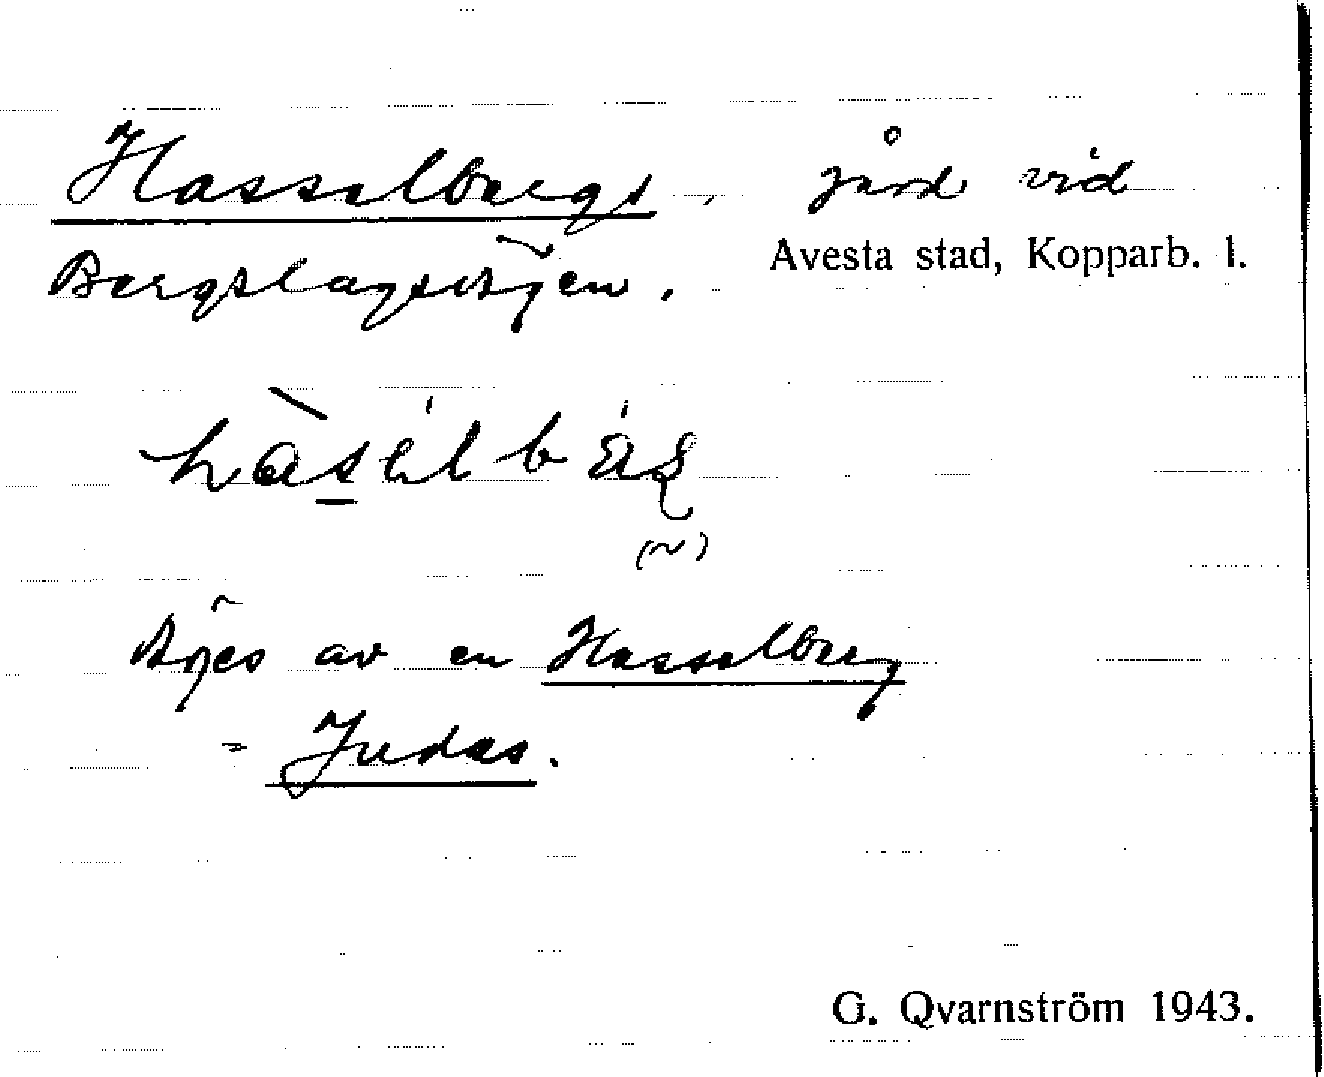 Hasselbergs, gård vid
Bergslagsvägen. Avesta stad, Kopparb. l.
Äges av en Hasselberg
= Judas.
G. Qvarnström 1943.